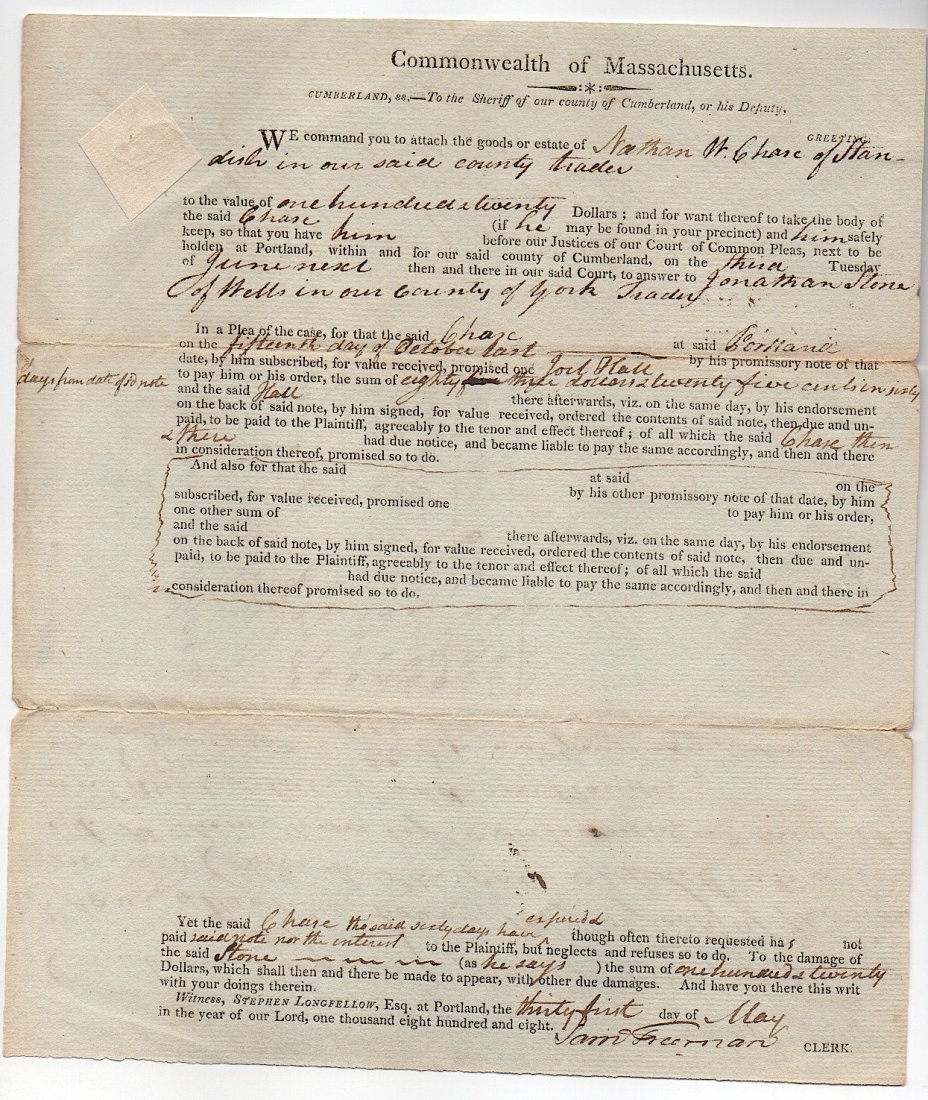 Commonwealth of Massachusetts.
CUMBERLAND, ss,—To the Sheriff of our county of Cumberland, or his Deputy,
GREETING.
WE command you to attach the goods or estate of Nathan W. Chase of Stan-
dish in our said county trader
to the value of one hundred & twenty Dollars; and for want thereof to take the body of
the said Chase (if he may be found in your precinct) and him safely
keep, so that you have him before our Justices of our Court of Common Pleas, next to be
holden at Portland, within and for our said county of Cumberland, on the third Tuesday
of June next then and there in our said Court, to answer to Jonathan Stone
of Wells in our County of York Trader
In a Plea of the case, for that the said Chase at said Portland
on the fifteenth day of October last by his promissory note of that
date, by him subscribed, for value received, promised one Joel Hall
to pay him or his order, the sum of eighty three dollars & twenty five cents in sixty
days from date of sd note
and the said Hall there afterwards, viz. on the same day, by his endorsement
on the back of said note, by him signed, for value received, ordered the contents of said note, then due and un-
paid, to be paid to the Plaintiff, agreeably to the tenor and effect thereof; of all which the said Chase then
& there had due notice, and became liable to pay the same accordingly, and then and there
in consideration thereof, promised so to do.
And also for that the said at said on the
by his other promissory note of that date, by him
subscribed, for value received, promised one to pay him or his order,
one other sum of
and the said there afterwards, viz. on the same day, by his endorsement
on the back of said note, by him signed, for value received, ordered the contents of said note, then due and un-
paid, to be paid to the Plaintiff, agreeably to the tenor and effect thereof; of all which the said
had due notice, and became liable to pay the same accordingly, and then and there in
consideration thereof promised so to do.
Yet the said Chase tho said sixty days have expired & though often thereto requested has not
paid said note nor the interest to the Plaintiff, but neglects and refuses so to do. To the damage of
the said Stone (as he says) the sum of one hundred & twenty
Dollars, which shall then and there be made to appear, with other due damages. And have you there this writ
with your doings therein.
Witness, STEPHEN LONGFELLOW, Esq. at Portland, the thirty first day of May
in the year of our Lord, one thousand eight hundred and eight.
Sam Freeman CLERK.